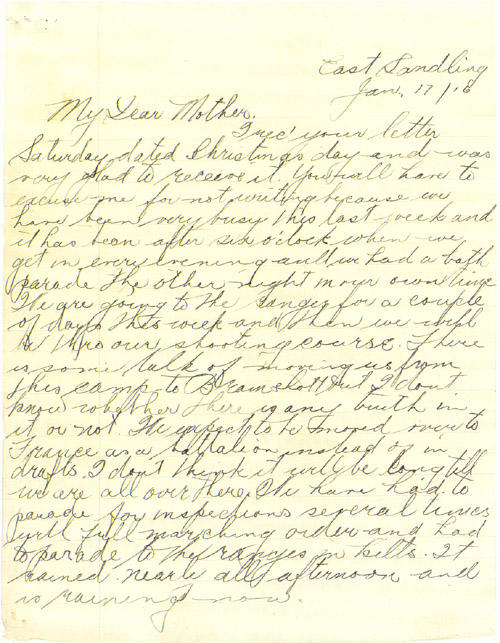 East Sandling
Jan. 17/16
My Dear Mother,
I rec' your letter
Saturday dated Christmas day and was
very glad to receive it. You will have to
excuse me for not writing because we
have been very busy this last week and
it has been after six o'clock when we
get in every evening and we had a bath
parade the other night in our own time
We are going to the ranges for a couple
of days this week and then we will
be thro our shooting course. There
is some talk of moving us from
this camp to but I dont
know whether there is any truth in
it or not. We expect to be moved over to
France as a battalion instead of in
drafts. I don't think it will be long till
we are all over there. We have had to
parade for inspections several times
full marching order and had
to parade to the ranges in kilts. It
rained nearly all afternoon and
is raining now.